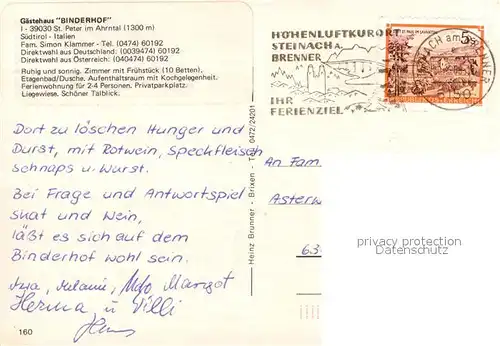 Gästehaus "BINDERHOF"
I - 39030 St. Peter im Ahrntal (1300 m)
Südtirol - Italien
Fam. Simon Klammer - Tel. (0474) 60192
Direktwahl aus Deutschland: (0039474) 60192
Direktwahl aus Österreich: (040474) 60192
Ruhig und sonnig. Zimmer mit Frühstück (10 Betten).
Etagenbad/Dusche. Aufenthaltsraum mit Kochgelegenheit.
Ferienwohnung für 2-4 Personen. Privatparkplatz.
Liegewiese. Schöner Talblick.
Dort zu löschen Hunger und
Durst, mit Rotwein, Speckfleisch
schnaps u. Wurst.
Bei Frage und Antwortspiel
skat und Wein,
läßt es sich auf dem
Binderhof wohl sein.
Melanie, Udo Margot
Herma u Willi
160
Heinz Brunner - Brixen - Tel. 0472/24201
HÖHENLUFTKURORT
STEINACH a.
BRENNER
IHR
FERIENZIEL
5
An Fam.
Asterw
63
privacy protection
Datenschutz